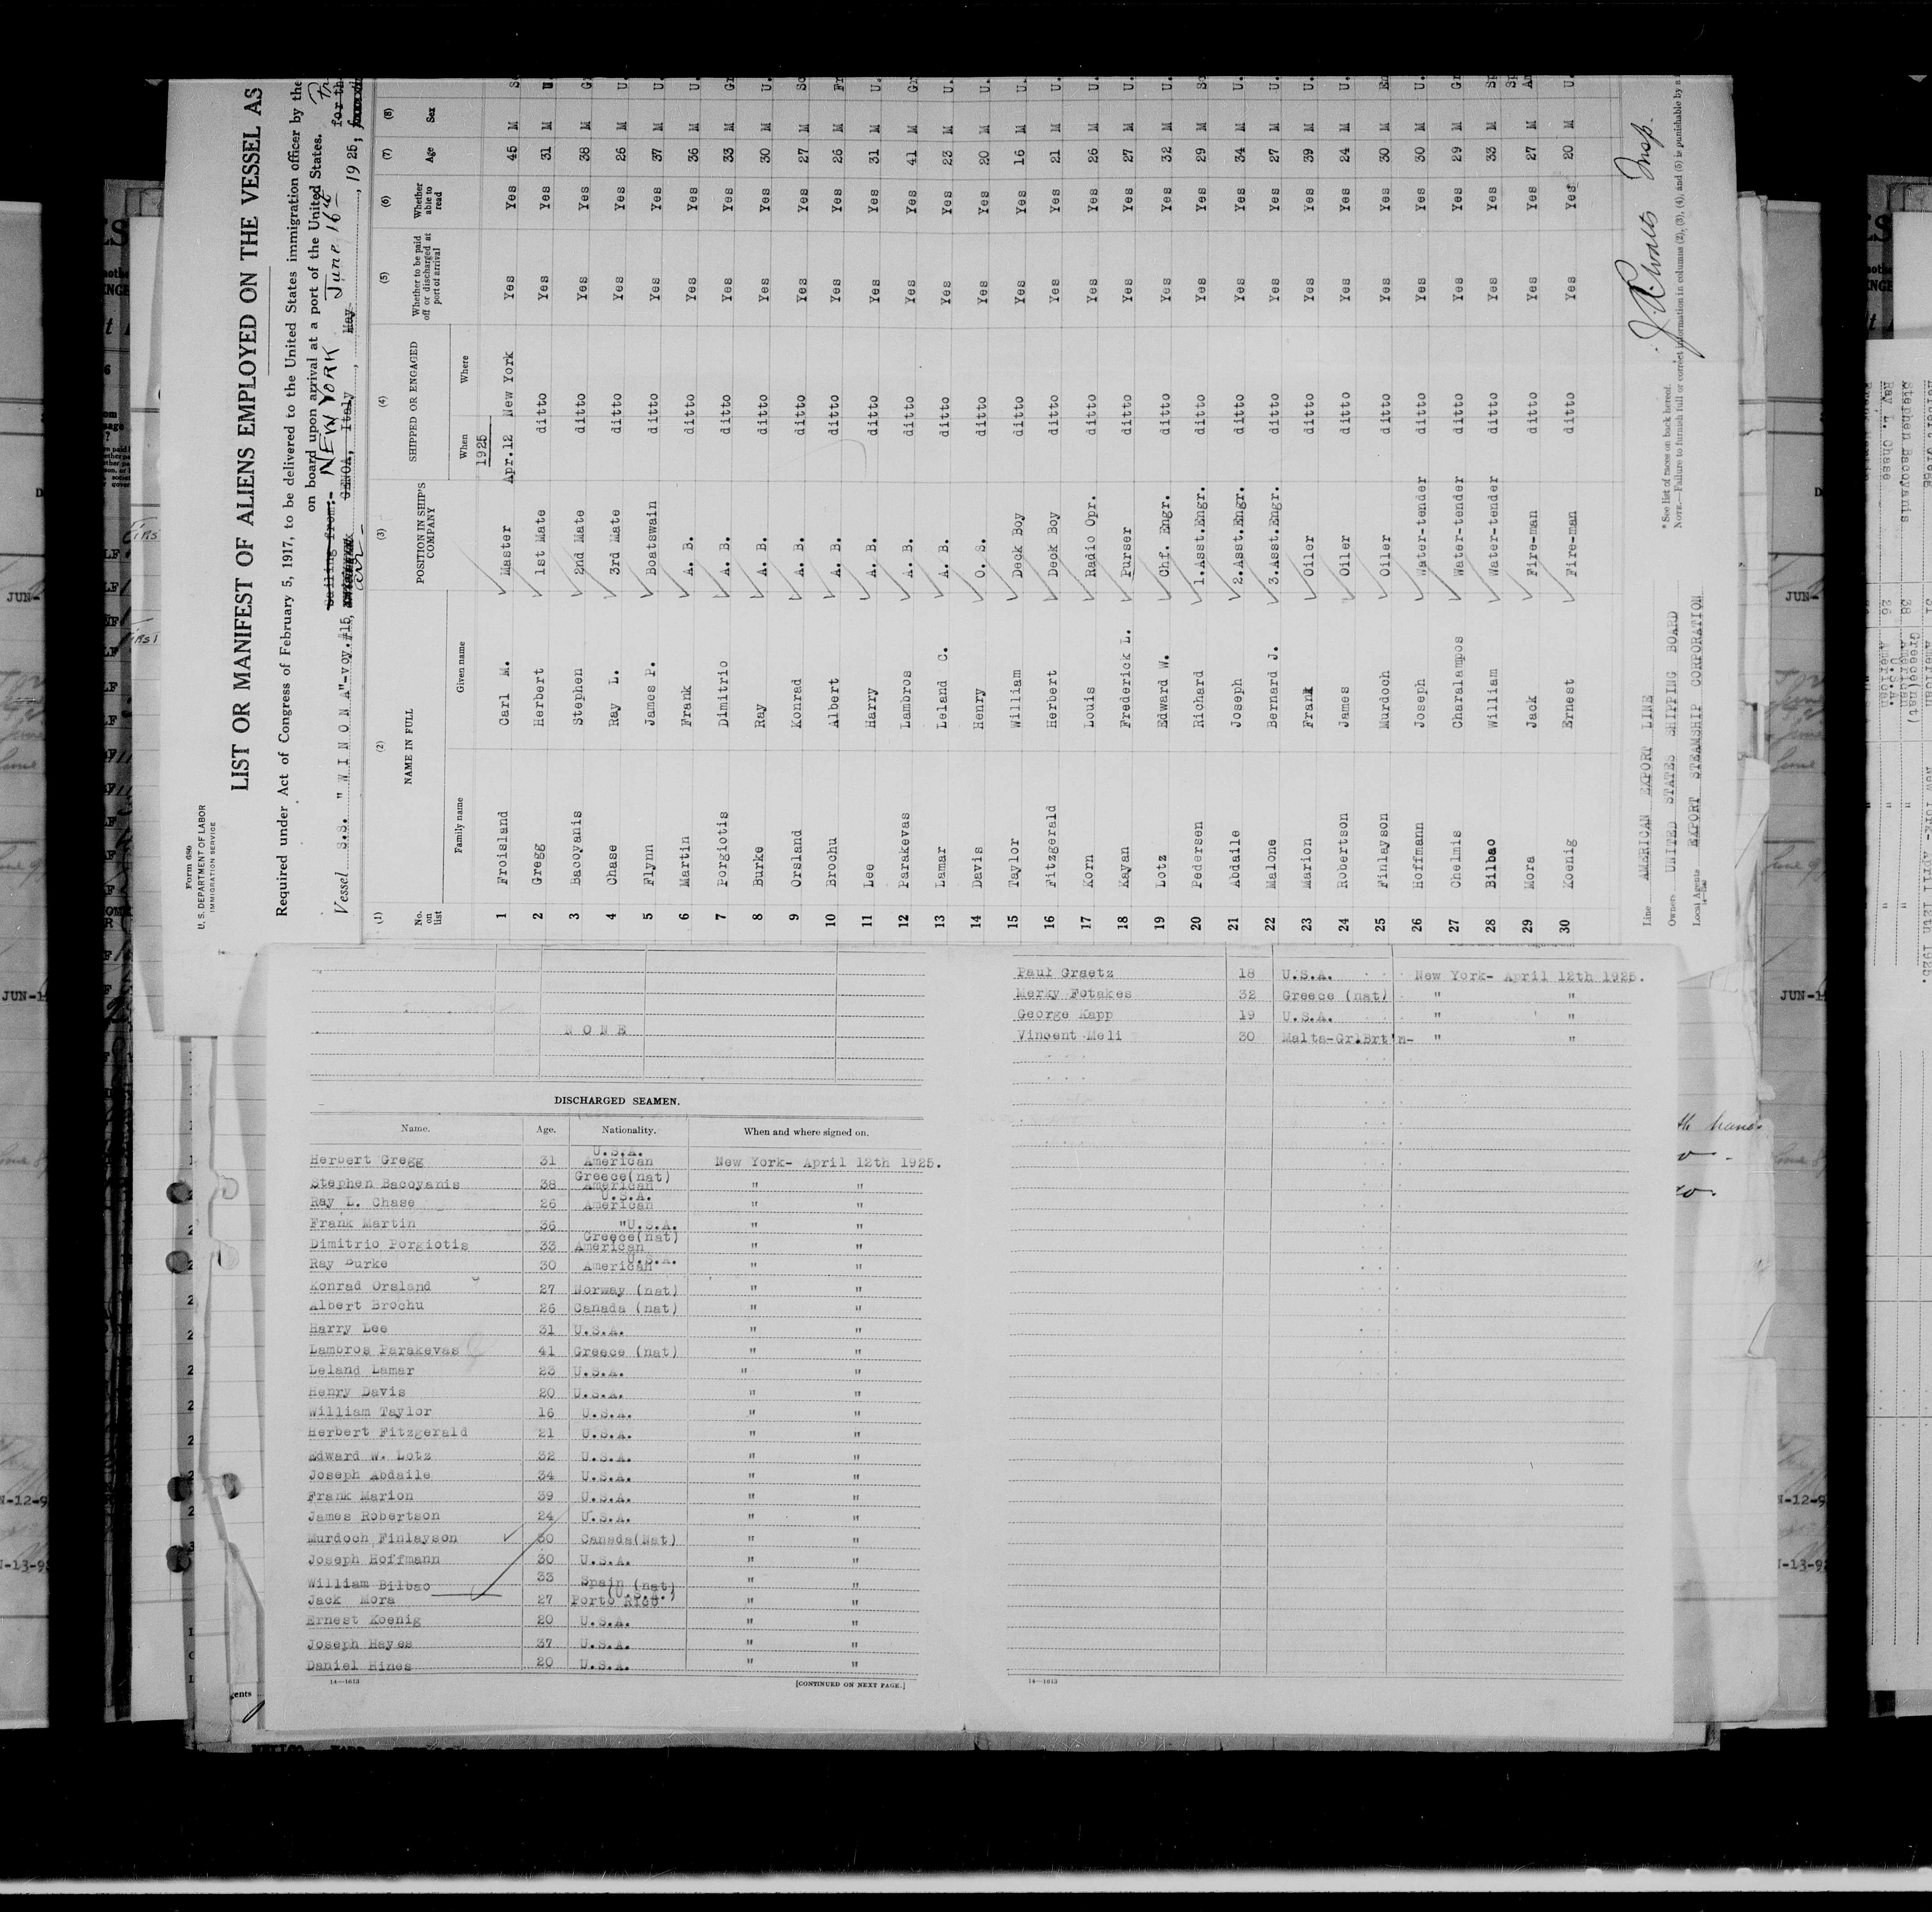 Form 680
U. S. DEPARTMENT OF LABOR
IMMIGRATION SERVICE
LIST OR MANIFEST OF ALIENS EMPLOYED ON THE VESSEL AS
Required under Act of Congress of February 5, 1917, to be delivered to the United States immigration officer by the
on board upon arrival at a port of the United States.
Sailing from:- NEW YORK June 16th
Vessel S.S. "WINONA"-voy.#15, GENOA, Italy, May, 1925;
(1) (2) (3) (4) (5) (6) (7) (8)
No. on list NAME IN FULL POSITION IN SHIP'S COMPANY SHIPPED OR ENGAGED Whether to be paid off or discharged at port of arrival Whether able to read Age Sex
Family name Given name When Where
1925
1 Froisland Carl M. Master Apr.12 New York Yes Yes 45 M
2 Gregg Herbert 1st Mate ditto Yes Yes 31 M
3 Bacoyanis Stephen 2nd Mate ditto Yes Yes 38 M
4 Chase Ray L. 3rd Mate ditto Yes Yes 26 M U.
5 Flynn James P. Boatswain ditto Yes Yes 37 M U.
6 Martin Frank A. B. ditto Yes Yes 36 M U.
7 Porgiotis Dimitrio A. B. ditto Yes Yes 33 M Gr
8 Burke Ray A. B. ditto Yes Yes 30 M U.
9 Orsland Konrad A. B. ditto Yes Yes 27 M Sc
10 Brochu Albert A. B. ditto Yes Yes 26 M Fr
11 Lee Harry A. B. ditto Yes Yes 31 M U.
12 Parakevas Lambros A. B. ditto Yes Yes 41 M Gr
13 Lamar Leland C. A. B. ditto Yes Yes 23 M U.
14 Davis Henry O. S. ditto Yes Yes 20 M U.
15 Taylor William Deck Boy ditto Yes Yes 16 M U.
16 Fitzgerald Herbert Deck Boy ditto Yes Yes 21 M U.
17 Korn Louis Radio Opr. ditto Yes Yes 26 M U.
18 Kayan Frederick L. Purser ditto Yes Yes 27 M U.
19 Lotz Edward W. Chf. Engr. ditto Yes Yes 32 M U.
20 Pedersen Richard 1.Asst.Engr. ditto Yes Yes 29 M Sc
21 Abdaile Joseph 2.Asst.Engr. ditto Yes Yes 34 M U.
22 Malone Bernard J. 3.Asst.Engr. ditto Yes Yes 27 M U.
23 Marion Frank Oiler ditto Yes Yes 39 M U.
24 Robertson James Oiler ditto Yes Yes 24 M U.
25 Finlayson Murdoch Oiler ditto Yes Yes 30 M En
26 Hoffmann Joseph Water-tender ditto Yes Yes 30 M U.
27 Chelmis Charalampos Water-tender ditto Yes Yes 29 M Gr
28 Bilbao William Water-tender ditto Yes Yes 33 M Sp
29 Mora Jack Fire-man ditto Yes Yes 27 M
30 Koenig Ernest Fire-man ditto Yes Yes 20 M U.
Line AMERICAN EXPORT LINE
Owners UNITED STATES SHIPPING BOARD
Local Agents EXPORT STEAMSHIP CORPORATION
* See list of races on back hereof.
NOTE.—Failure to furnish full or correct information in columns (2), (3), (4), and (5) is punishable by a
Insp.
NONE
DISCHARGED SEAMEN.
Name. Age. Nationality. When and where signed on.
Herbert Gregg 31 U.S.A. American New York- April 12th 1925.
Stephen Bacoyanis 38 Greece(nat) American " "
Ray L. Chase 26 U.S.A. American " "
Frank Martin 36 "U.S.A. " "
Dimitrio Porgiotis 33 Greece(nat) American " "
Ray Burke 30 U.S.A. American " "
Konrad Orsland 27 Norway (nat) " "
Albert Brochu 26 Canada (nat) " "
Harry Lee 31 U.S.A. " "
Lambros Parakevas 41 Greece (nat) " "
Leland Lamar 23 U.S.A. " "
Henry Davis 20 U.S.A. " "
William Taylor 16 U.S.A. " "
Herbert Fitzgerald 21 U.S.A. " "
Edward W. Lotz 32 U.S.A. " "
Joseph Abdaile 34 U.S.A. " "
Frank Marion 39 U.S.A. " "
James Robertson 24 U.S.A. " "
Murdoch Finlayson 30 Canada(Nat) " "
Joseph Hoffmann 30 U.S.A. " "
William Bilbao 33 Spain (nat) " "
Jack Mora 27 Porto Rico (U.S.A.) " "
Ernest Koenig 20 U.S.A. " "
Joseph Hayes 37 U.S.A. " "
Daniel Hines 20 U.S.A. " "
14—1613
[CONTINUED ON NEXT PAGE.]
Paul Graetz 18 U.S.A. New York- April 12th 1925.
Merky Fotakes 32 Greece (nat) " "
George Kapp 19 U.S.A. " "
Vincent Meli 30 Malta-Gr.Brt'n- " "
14—1613